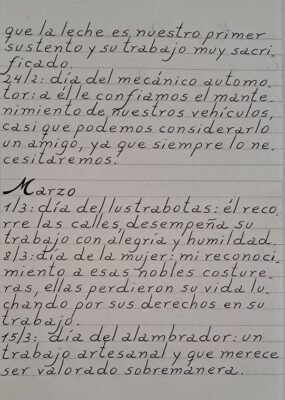 que la leche es nuestro primer
sustento y su trabajo muy sacri-
ficado.
24/2: día del mecánico automo-
tor: a él le confiamos el mante-
nimiento de nuestros vehículos,
casi que podemos considerarlo
un amigo, ya que siempre lo ne-
cesitaremos.
Marzo
1/3: día del lustrabotas: él reco-
rre las calles, desempeña su
trabajo con alegría y humildad.
8/3: día de la mujer: mi reconoci-
miento a esas nobles costure-
ras, ellas perdieron su vida lu-
chando por sus derechos en su
trabajo.
15/3: día del alambrador: un
trabajo artesanal y que merece
ser valorado sobremanera.